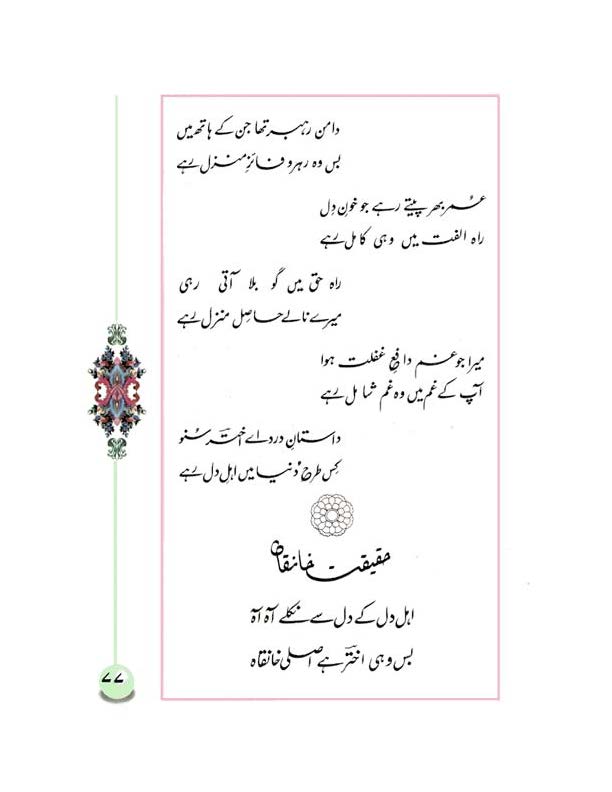 دامن رہبر تھا جن کے ہاتھ میں
بس وہ رہرو فائزِ منزل رہے
عُمر بھر پیتے رہے جو خونِ دِل
راہ الفت میں وہی کامل رہے
راہ حق میں گو بلا آتی رہی
میرے نالے حاصل منزل رہے
میرا جو غم دافعِ غفلت ہوا
آپ کے غم میں وہ غم شامل رہے
داستانِ درد اے اخترؔ سُنو
کِس طرح دُنیا میں اہلِ دل رہے
حقیقتِ خانقاہ
اہل دل کے دل سے نکلے آہ آہ
بس وہی اخترؔ ہے اصلی خانقاہ
۷۷